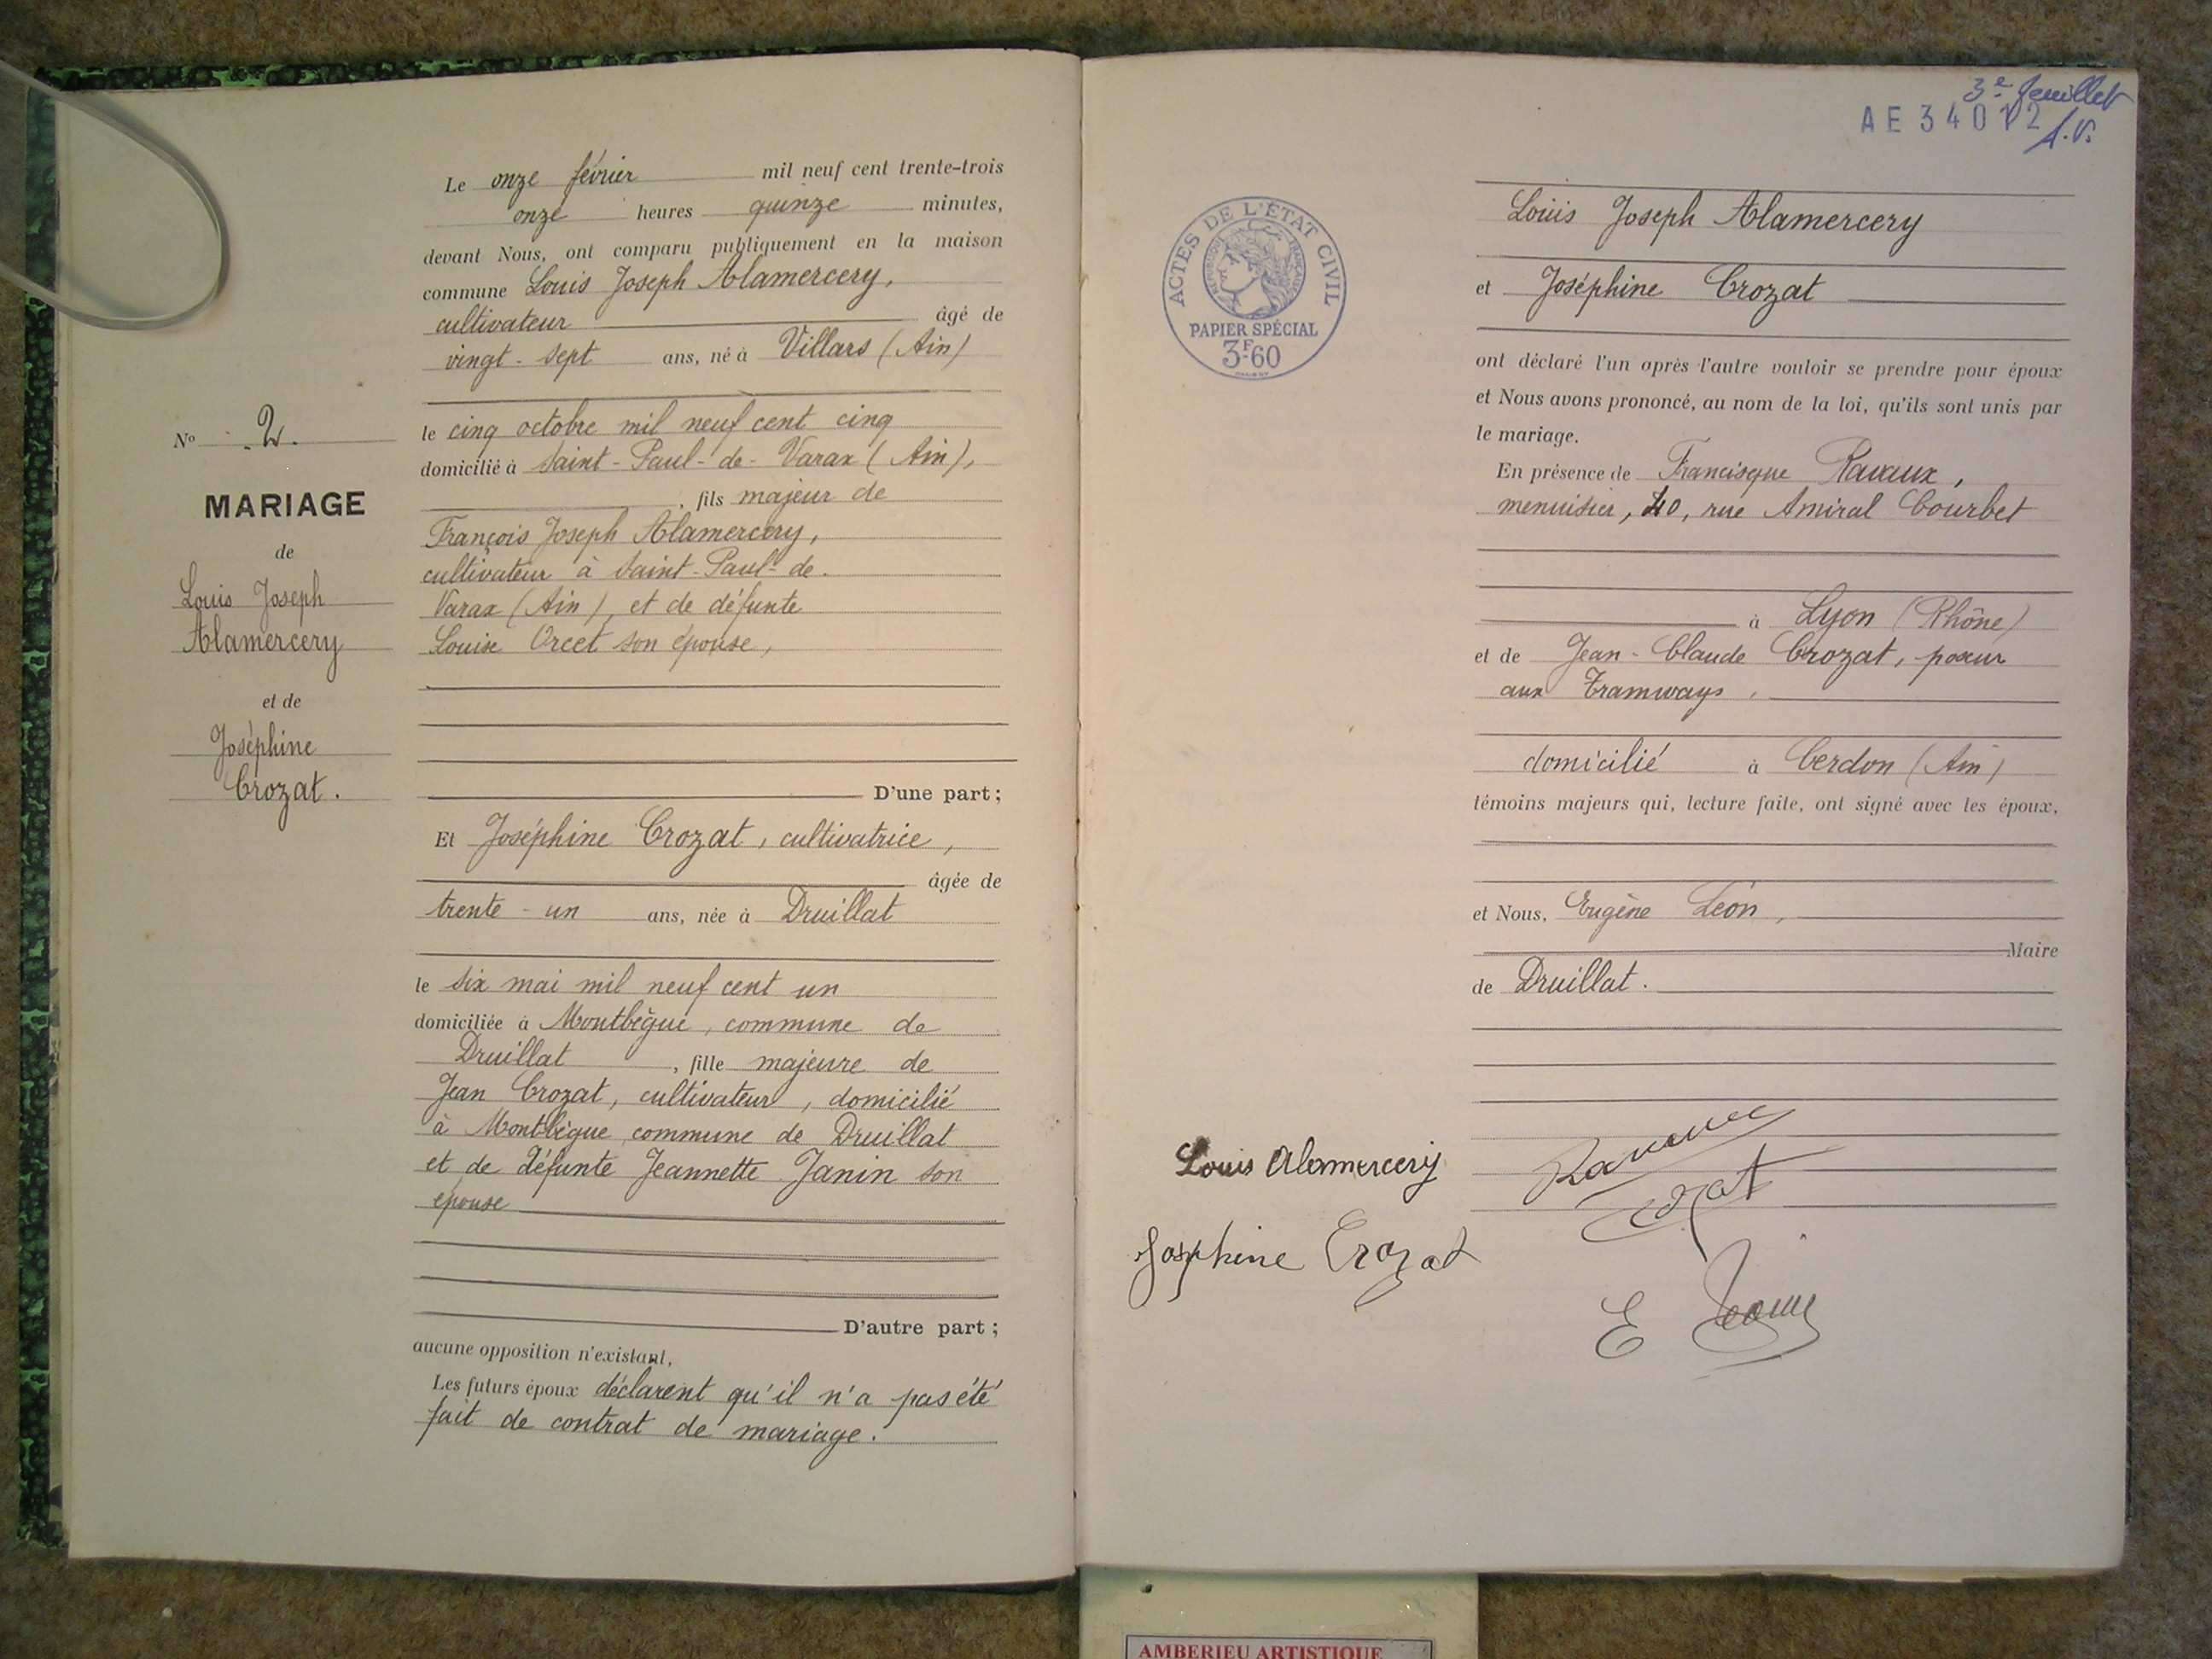 Le onze février mil neuf cent trente-trois
onze heures quinze minutes,
devant Nous, ont comparu publiquement en la maison
commune Louis Joseph Alamercery,
cultivateur âgé de
vingt-sept ans, né à Villars (Ain)
le cinq octobre mil neuf cent cinq
domicilié à Saint-Paul-de-Varax (Ain),
, fils majeur de
François Joseph Alamercery,
cultivateur à Saint-Paul-de-
Varax (Ain), et de défunte
Louise Orcet son épouse,
D'une part;
Et Joséphine Crozat, cultivatrice,
âgée de
trente-un ans, née à Druillat
le six mai mil neuf cent un
domiciliée à Montbègue, commune de
Druillat, fille majeure de
Jean Crozat, cultivateur, domicilié
à Montbègue commune de Druillat
et de défunte Jeannette Janin son
épouse
D'autre part;
aucune opposition n'existant,
Les futurs époux déclarent qu'il n'a pas été
fait de contrat de mariage.
No 2.
MARIAGE
de
Louis Joseph
Alamercery
et de
Joséphine
Crozat.
3e feuillet
AE 34012
ACTES DE L'ÉTAT CIVIL
PAPIER SPÉCIAL
3F60
Louis Joseph Alamercery
et Joséphine Crozat
ont déclaré l'un après l'autre vouloir se prendre pour époux
et Nous avons prononcé, au nom de la loi, qu'ils sont unis par
le mariage.
En présence de Francisque Ravaux,
menuisier, 40, rue Amiral Courbet
à Lyon (Rhône)
et de Jean-Claude Crozat, poseur
aux Tramways,
domicilié à Cerdon (Ain)
témoins majeurs qui, lecture faite, ont signé avec les époux,
et Nous, Eugène Léon,
Maire
de Druillat.
Louis Alamercery
Josphine Crozat
AMBERIEU ARTISTIQUE